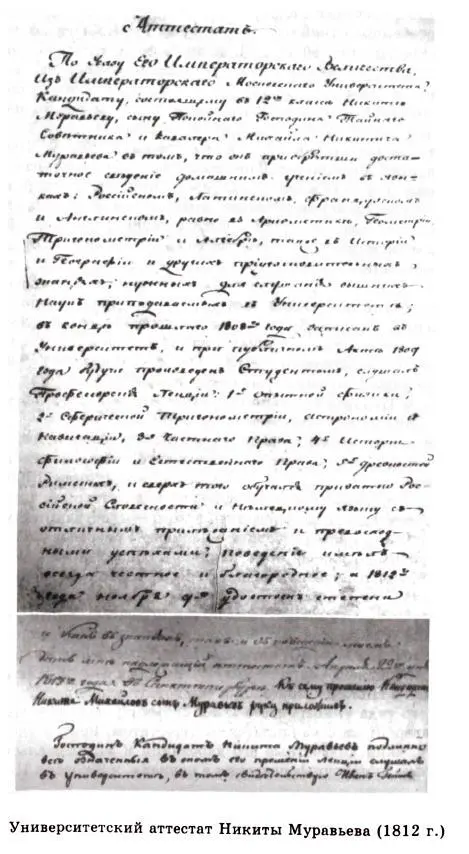 с Аттестатъ.
По Указу Его Императорскаго Величества,
Изъ Императорскаго Московскаго Университета,
Кандидату, состоящему въ 12мъ классѣ Никитѣ
Муравьеву, сыну Покойнаго Господина Тайнаго
Совѣтника и Кавалера Михайла Никитича
Муравьева въ томъ, что онъ приобрѣтши доста-
точное свѣдение домашнимъ ученіемъ въ язы-
кахъ: Россійскомъ, Латинскомъ, Французскомъ
и Англинскомъ, равно въ Арифметикѣ, Геометріи
Тригонометріи и Алгебрѣ, также въ Исторіи
и Географіи и другихъ приуготовительныхъ
знаніяхъ, нужныхъ для слушанія вышнихъ
Наукъ преподаваемыхъ въ Университетѣ;
въ концѣ прошлаго 1808го года записанъ въ
Университетъ, и при публичномъ Актѣ 1809
года Іюля произведенъ Студентомъ, слушалъ
Профессорскія Лекціи: 1е опытной физики;
2е Сферической Тригонометріи, Астрономіи и
Навигаціи, 3е Частнаго Права; 4е Исторіи
Философіи и Естественнаго Права; 5е древностей
Римскихъ, и сверхъ того обучался приватно Рос-
сійской Словесности и Нѣмецкому языку съ
отличнымъ прилѣжаніемъ и превосход-
ными успѣхами; поведеніе имѣлъ
всегда честное и благородное; а 1812го
года ноября 9го удостоенъ степени
и званіе такъ и въ
дать мнѣ надлежащій аттестатъ. Апрѣля 29го дня
года Къ сему прошению Кандидатъ
Никита Михайловъ сынъ Муравьевъ руку приложилъ.
Господинъ Кандидатъ Никита Муравьевъ подлинно
всѣ означенныя въ ономъ его прошеніи лекціи слушалъ
въ Университетѣ, въ томъ свидѣтельствую Иванъ
Университетский аттестат Никиты Муравьева (1812 г.)